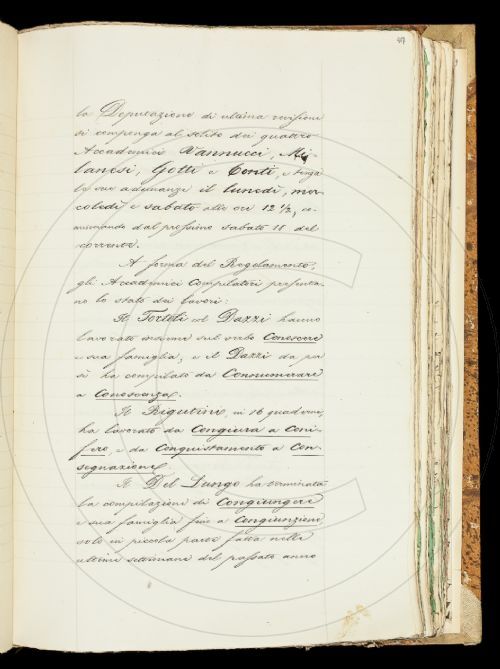 417
la Deputazione di ultima revisione
si componga al solito dei quattro
Accademici Vannucci, Mi-
lanesi, Gotti e Conti, e tenga
le sue adunanze il lunedì, mer-
coledì e sabato alle ore 12 1/2, co-
minciando dal prossimo sabato 11 del
corrente.
A forma del Regolamento,
gli Accademici Compilatori presenta-
no lo stato dei lavori:
Il Tortoli col Dazzi hanno
lavorato insieme sul verbo Conoscere
e sua famiglia, e il Dazzi da per
sè ha compilato da Connumerare
a Conoscenza.
Il Rigutini, in 16 quaderni,
ha lavorato da Congiura a Coni-
fero, e da Conquistamento a Con-
segnazione.
Il Del Lungo ha terminata
la compilazione di Congiungere
e sua famiglia fino a Congiunzione
solo in piccola parte fatta nelle
ultime settimane del passato anno